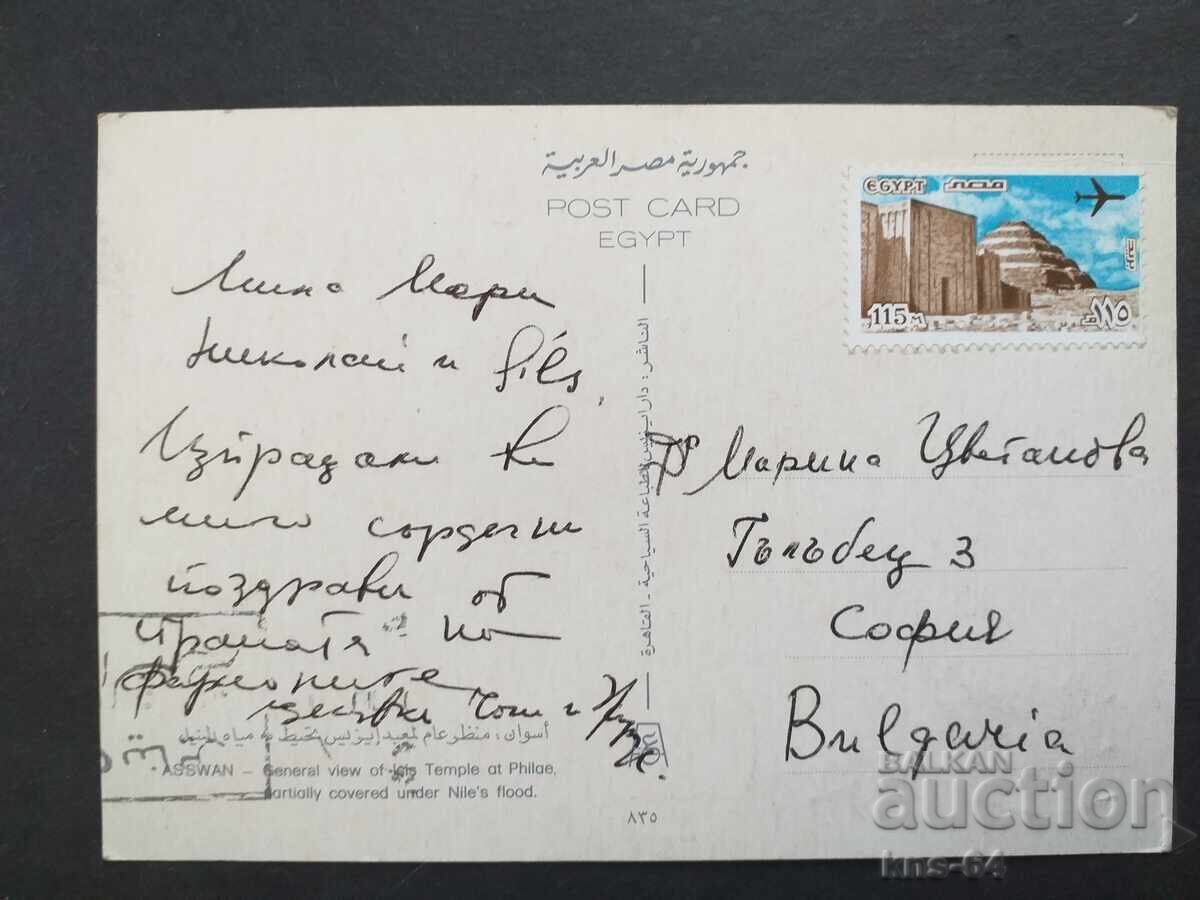 جمهورية مصر العربية
POST CARD
EGYPT
EGYPT مصر
115 M
١١٥
Мила Мари
Николай и fils,
Изпращам Ви
много сърдечни
поздрави от
страната на
фараоните,
Др Марина Цветанова
Гълъбец 3
София
Bulgaria
الناشر : دار للطباعة السياحية - القاهرة
أسوان : منظر عام لمعبد إيزيس تحيط به مياه النيل
ASSWAN – General view of Isis Temple at Philae,
partially covered under Nile's flood.
٨٣٥
BALKAN
auction
kns-64